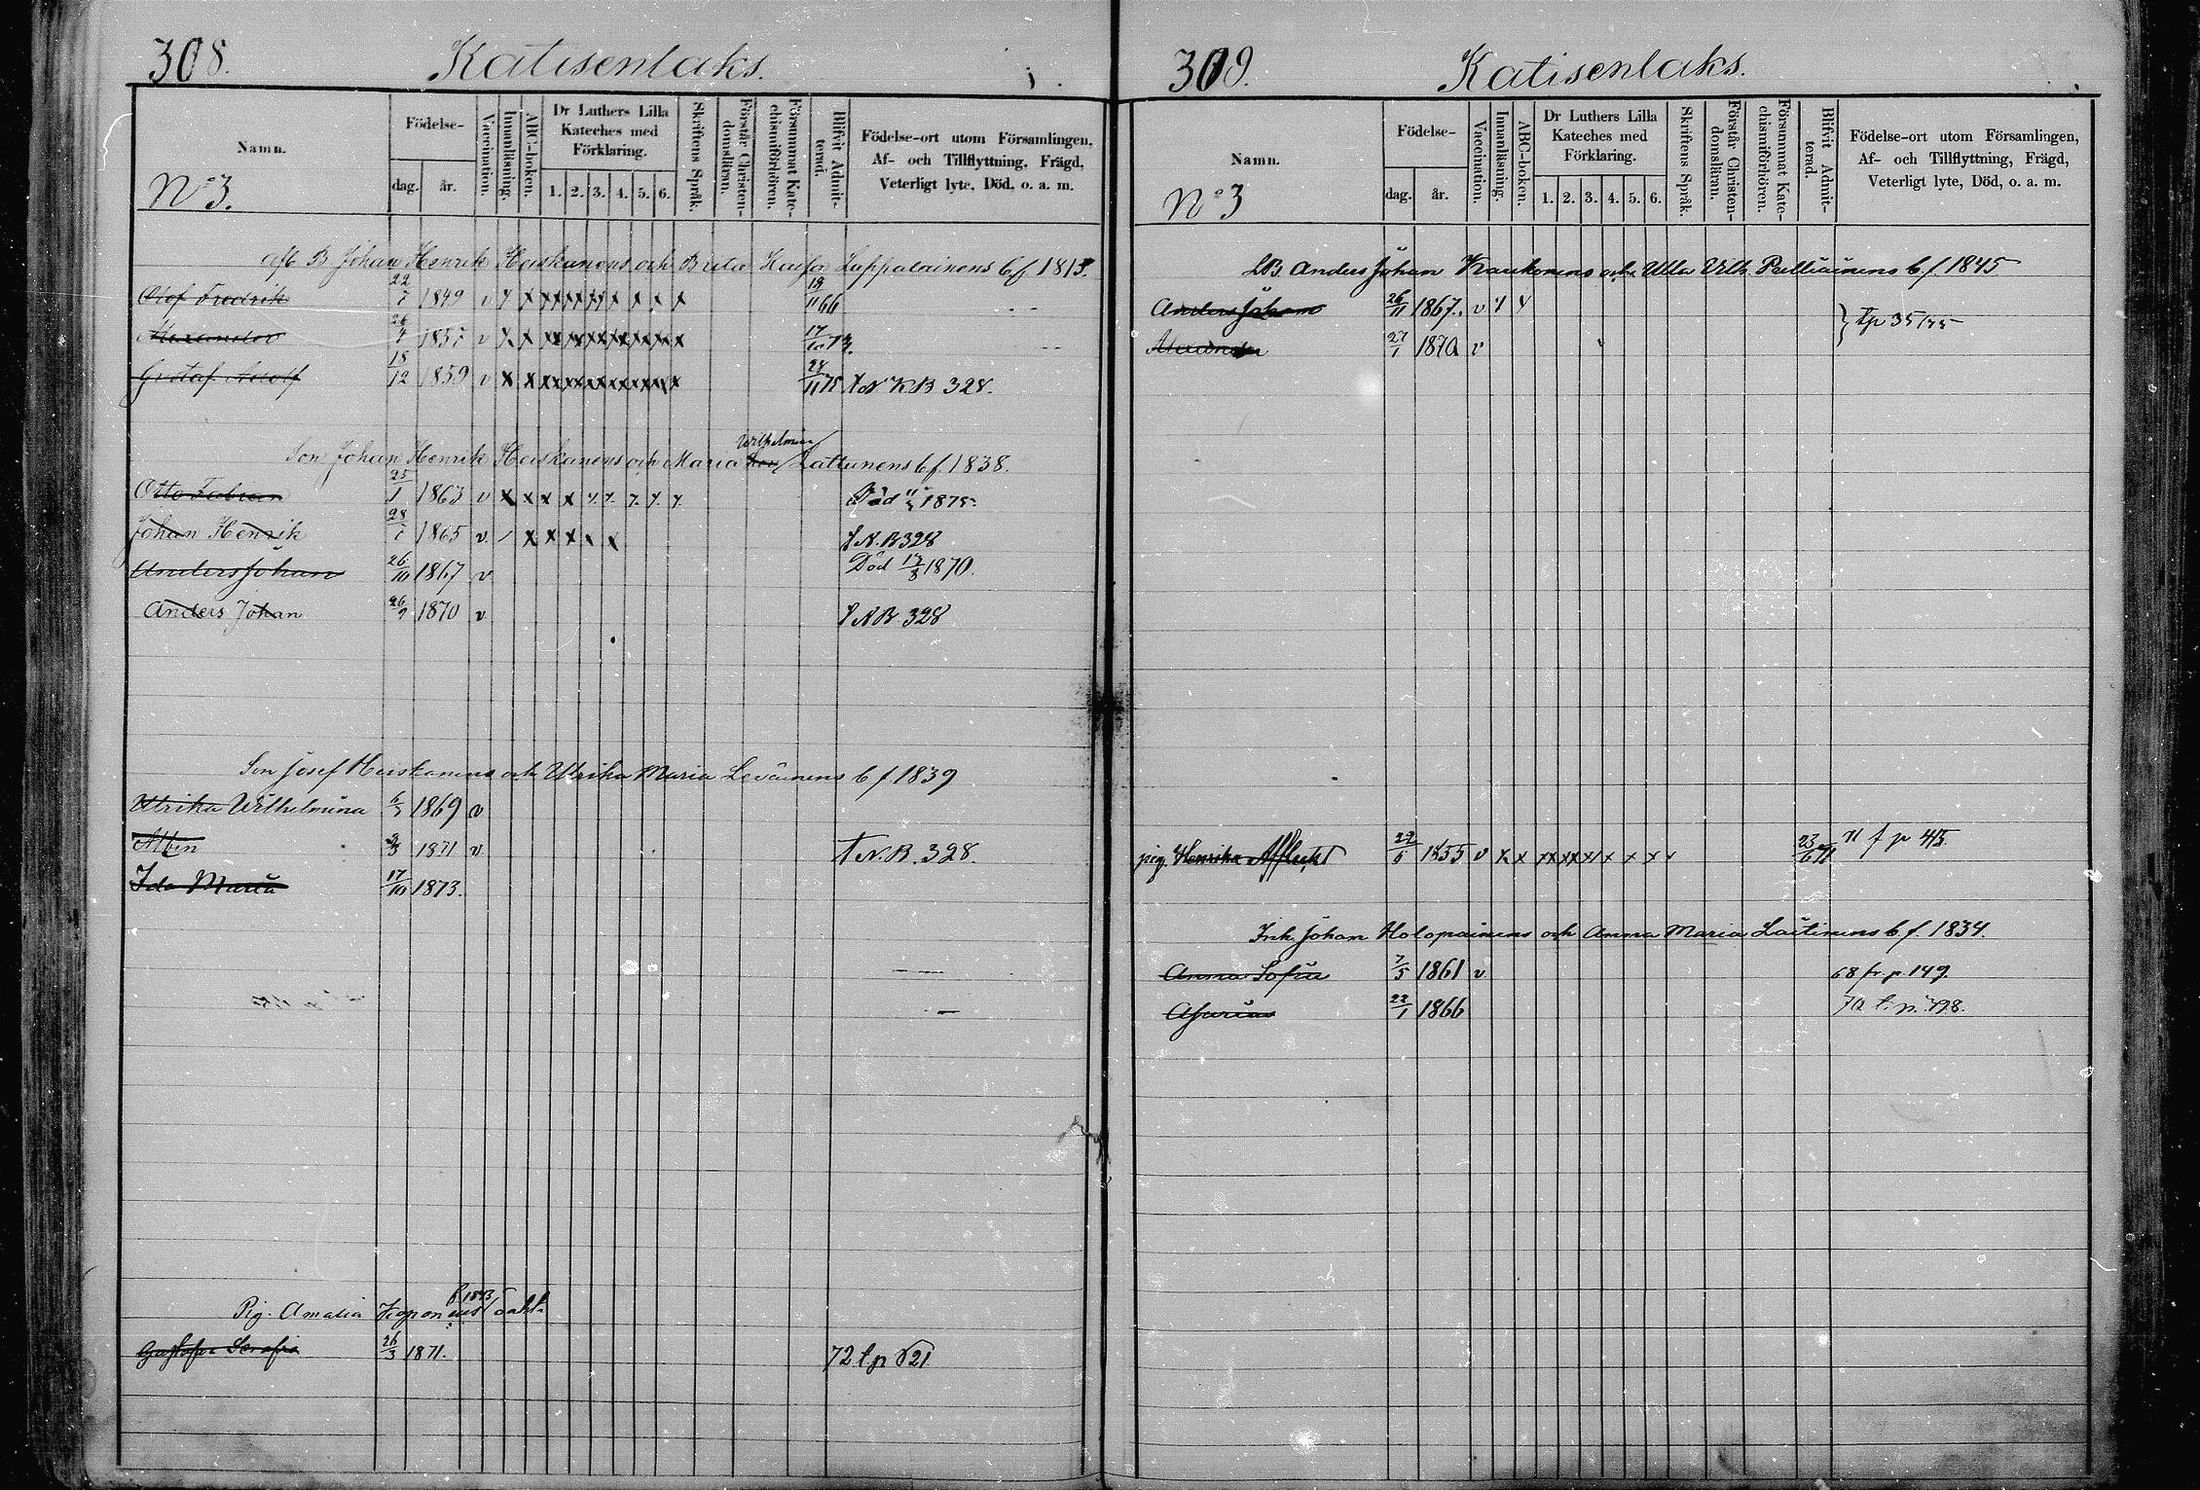 308.
Katisenlaks.
Namn.
Födelse-
dag.
år.
Vaccination.
Innanläsning.
ABC-boken.
Dr Luthers Lilla
Kateches med
Förklaring.
1. 2. 3. 4. 5. 6.
Skriftens Språk.
Förstår Christen-
domsläran.
Försummat Kate-
chismiförhören.
Blifvit Admit-
terad.
Födelse-ort utom Församlingen,
Af- och Tillflyttning, Frägd,
Veterligt lyte, Död, o. a. m.
No 3.
B Johan Henrik Heiskanens och Brita Kaisa Lappalainens b f. 1813.
Olof Fredrik 22/7 1849 v x x x x x x x x x x 66
Alexander 26/4 1857 v x x x x x x x x x x
Gustaf Adolf 18/12 1859 v x x x x x x x x x x 28/11 75 N KB 328.
Son Johan Henrik Heiskanens och Maria Wilhelmina Lattunens b f. 1838.
Otto Fabian 25/1 1863 v x x x x x x x x x Död 1875
Johan Henrik 28/7 1865 v / x x x x x N.B 328
Anders Johan 26/10 1867 v Död 1870.
Anders Johan 26/9 1870 v N B 328
Son Josef Heiskanens och Ulrika Maria Leväinens b f 1839
Ulrika Wilhelmina 6/3 1869 v
Albin 1871 v N.B. 328.
Ida Maria 17/10 1873.
f 1843
Pig. Amalia
Gustafva Serafia 26/3 1871. 72 t p 521
309.
Katisenlaks.
Namn.
Födelse-
dag.
år.
Vaccination.
Innanläsning.
ABC-bokon.
Dr Luthers Lilla
Kateches med
Förklaring.
1. 2. 3. 4. 5. 6.
Skriftens Språk.
Förstår Christen-
domsläran.
Försummat Kate-
chismiförhören.
Blifvit Admit-
terad.
Födelse-ort utom Församlingen,
Af- och Tillflyttning, Frägd,
Veterligt lyte, Död, o. a. m.
No 3
LB Anders Johan Kaukonens och Ulla Vilh. b f 1845
Anders Johan 26/11 1867. v
Alexander 27/1 1870 v
pig. Henrika Afflekt 1855 v x x x x x x x x x x 23/6 71 71 f p 415.
Inh. Johan Holopainens och Anna Maria Laitinens b f. 1834.
Anna Sofia 7/5 1861 v 68 fr. p. 149.
Asarias 22/1 1866 70 t. p.